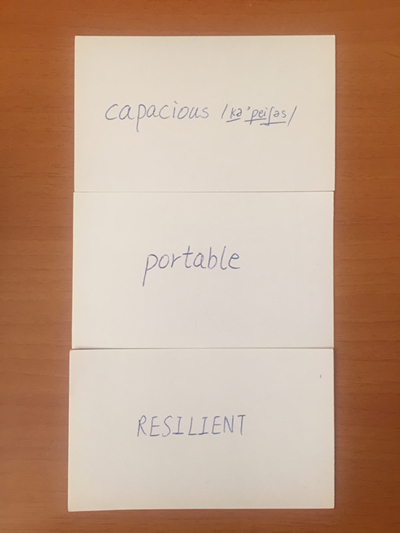 capacious /kə'peiʃəs/
portable
RESILIENT